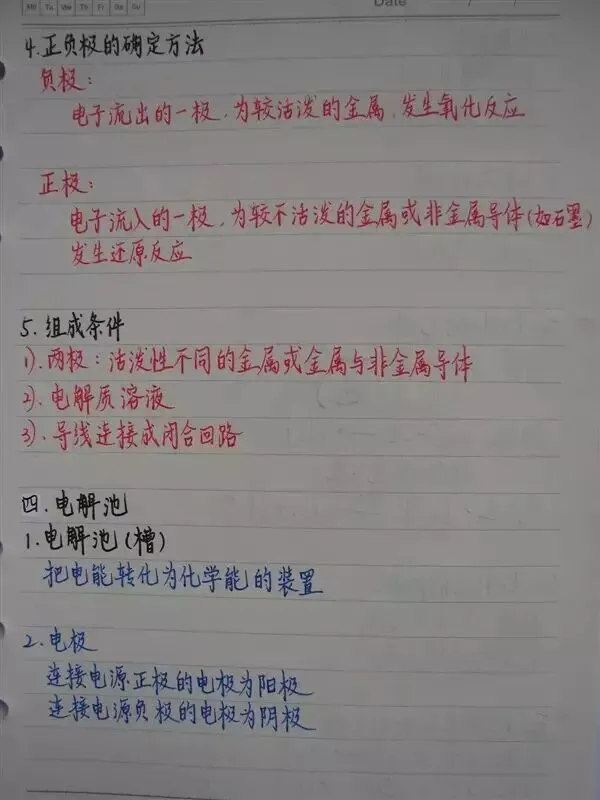 Mo Tu We Th Fr Sa Su
Date
4.正负极的确定方法
负极：
电子流出的一极，为较活泼的金属，发生氧化反应
正极：
电子流入的一极，为较不活泼的金属或非金属导体(如石墨)
发生还原反应
5.组成条件
1).两极：活泼性不同的金属或金属与非金属导体
2).电解质溶液
3).导线连接成闭合回路
四.电解池
1.电解池(槽)
把电能转化为化学能的装置
2.电极
连接电源正极的电极为阳极
连接电源负极的电极为阴极